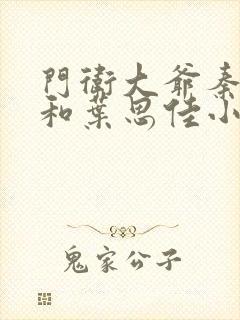 門衛大爺秦
和葉思佳小
鬼家公子